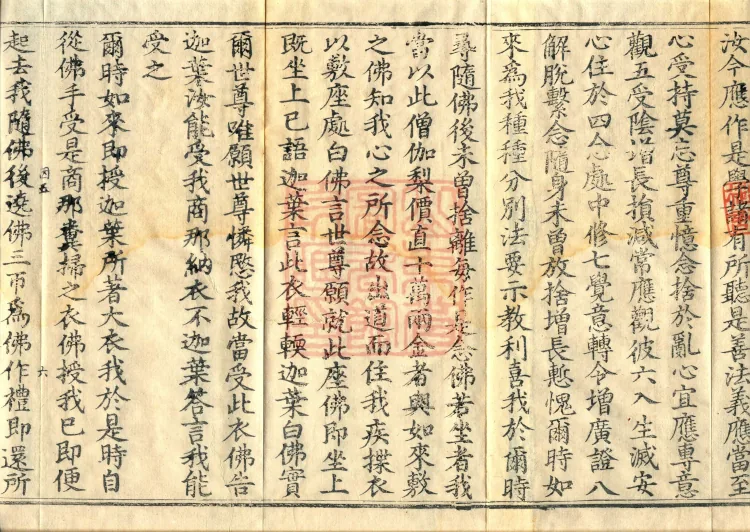 汝今應作是學諸有所聽是善法義應當至
心受持莫忘尊重憶念捨於亂心宜應專意
觀五受陰增長損減常應觀彼六入生滅安
心住於四念處中修七覺意轉令增廣證八
解脫繫念隨身未曾放捨增長慙愧爾時如
來為我種種分別法要示教利喜我於爾時
尋隨佛後未曾捨離每作是念佛若坐者我
當以此僧伽梨價直十萬兩金者與如來敷
之佛知我心之所念故出道而住我疾揲衣
以敷座處白佛言世尊願就此座佛即坐上
既坐上已語迦葉言此衣輕輭迦葉白佛實
爾世尊唯願世尊憐愍我故當受此衣佛告
迦葉汝能受我商那納衣不迦葉答言我能
受之
爾時如來即授迦葉所著大衣我於是時自
從佛手受是商那糞掃之衣佛授我已即便
起去我隨佛後遶佛三帀為佛作禮即還所
因五
六